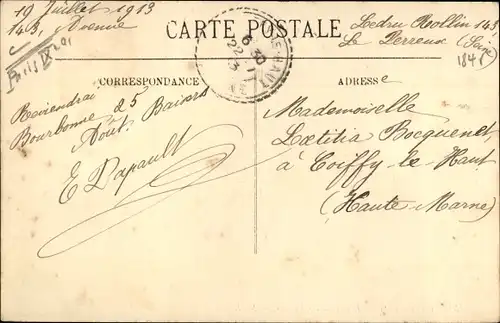 19 Juillet 1913
143, Avenue
CARTE POSTALE
Ledru Rollin 143
Le Perreux (Seine)
CORRESPONDANCE
ADRESSE
Reviendrai
Bourbonne 25
Août. Baisers
E Dapault
Mademoiselle
Lætitia Bocquenet
à Coiffy-le-Haut
(Haute-Marne)